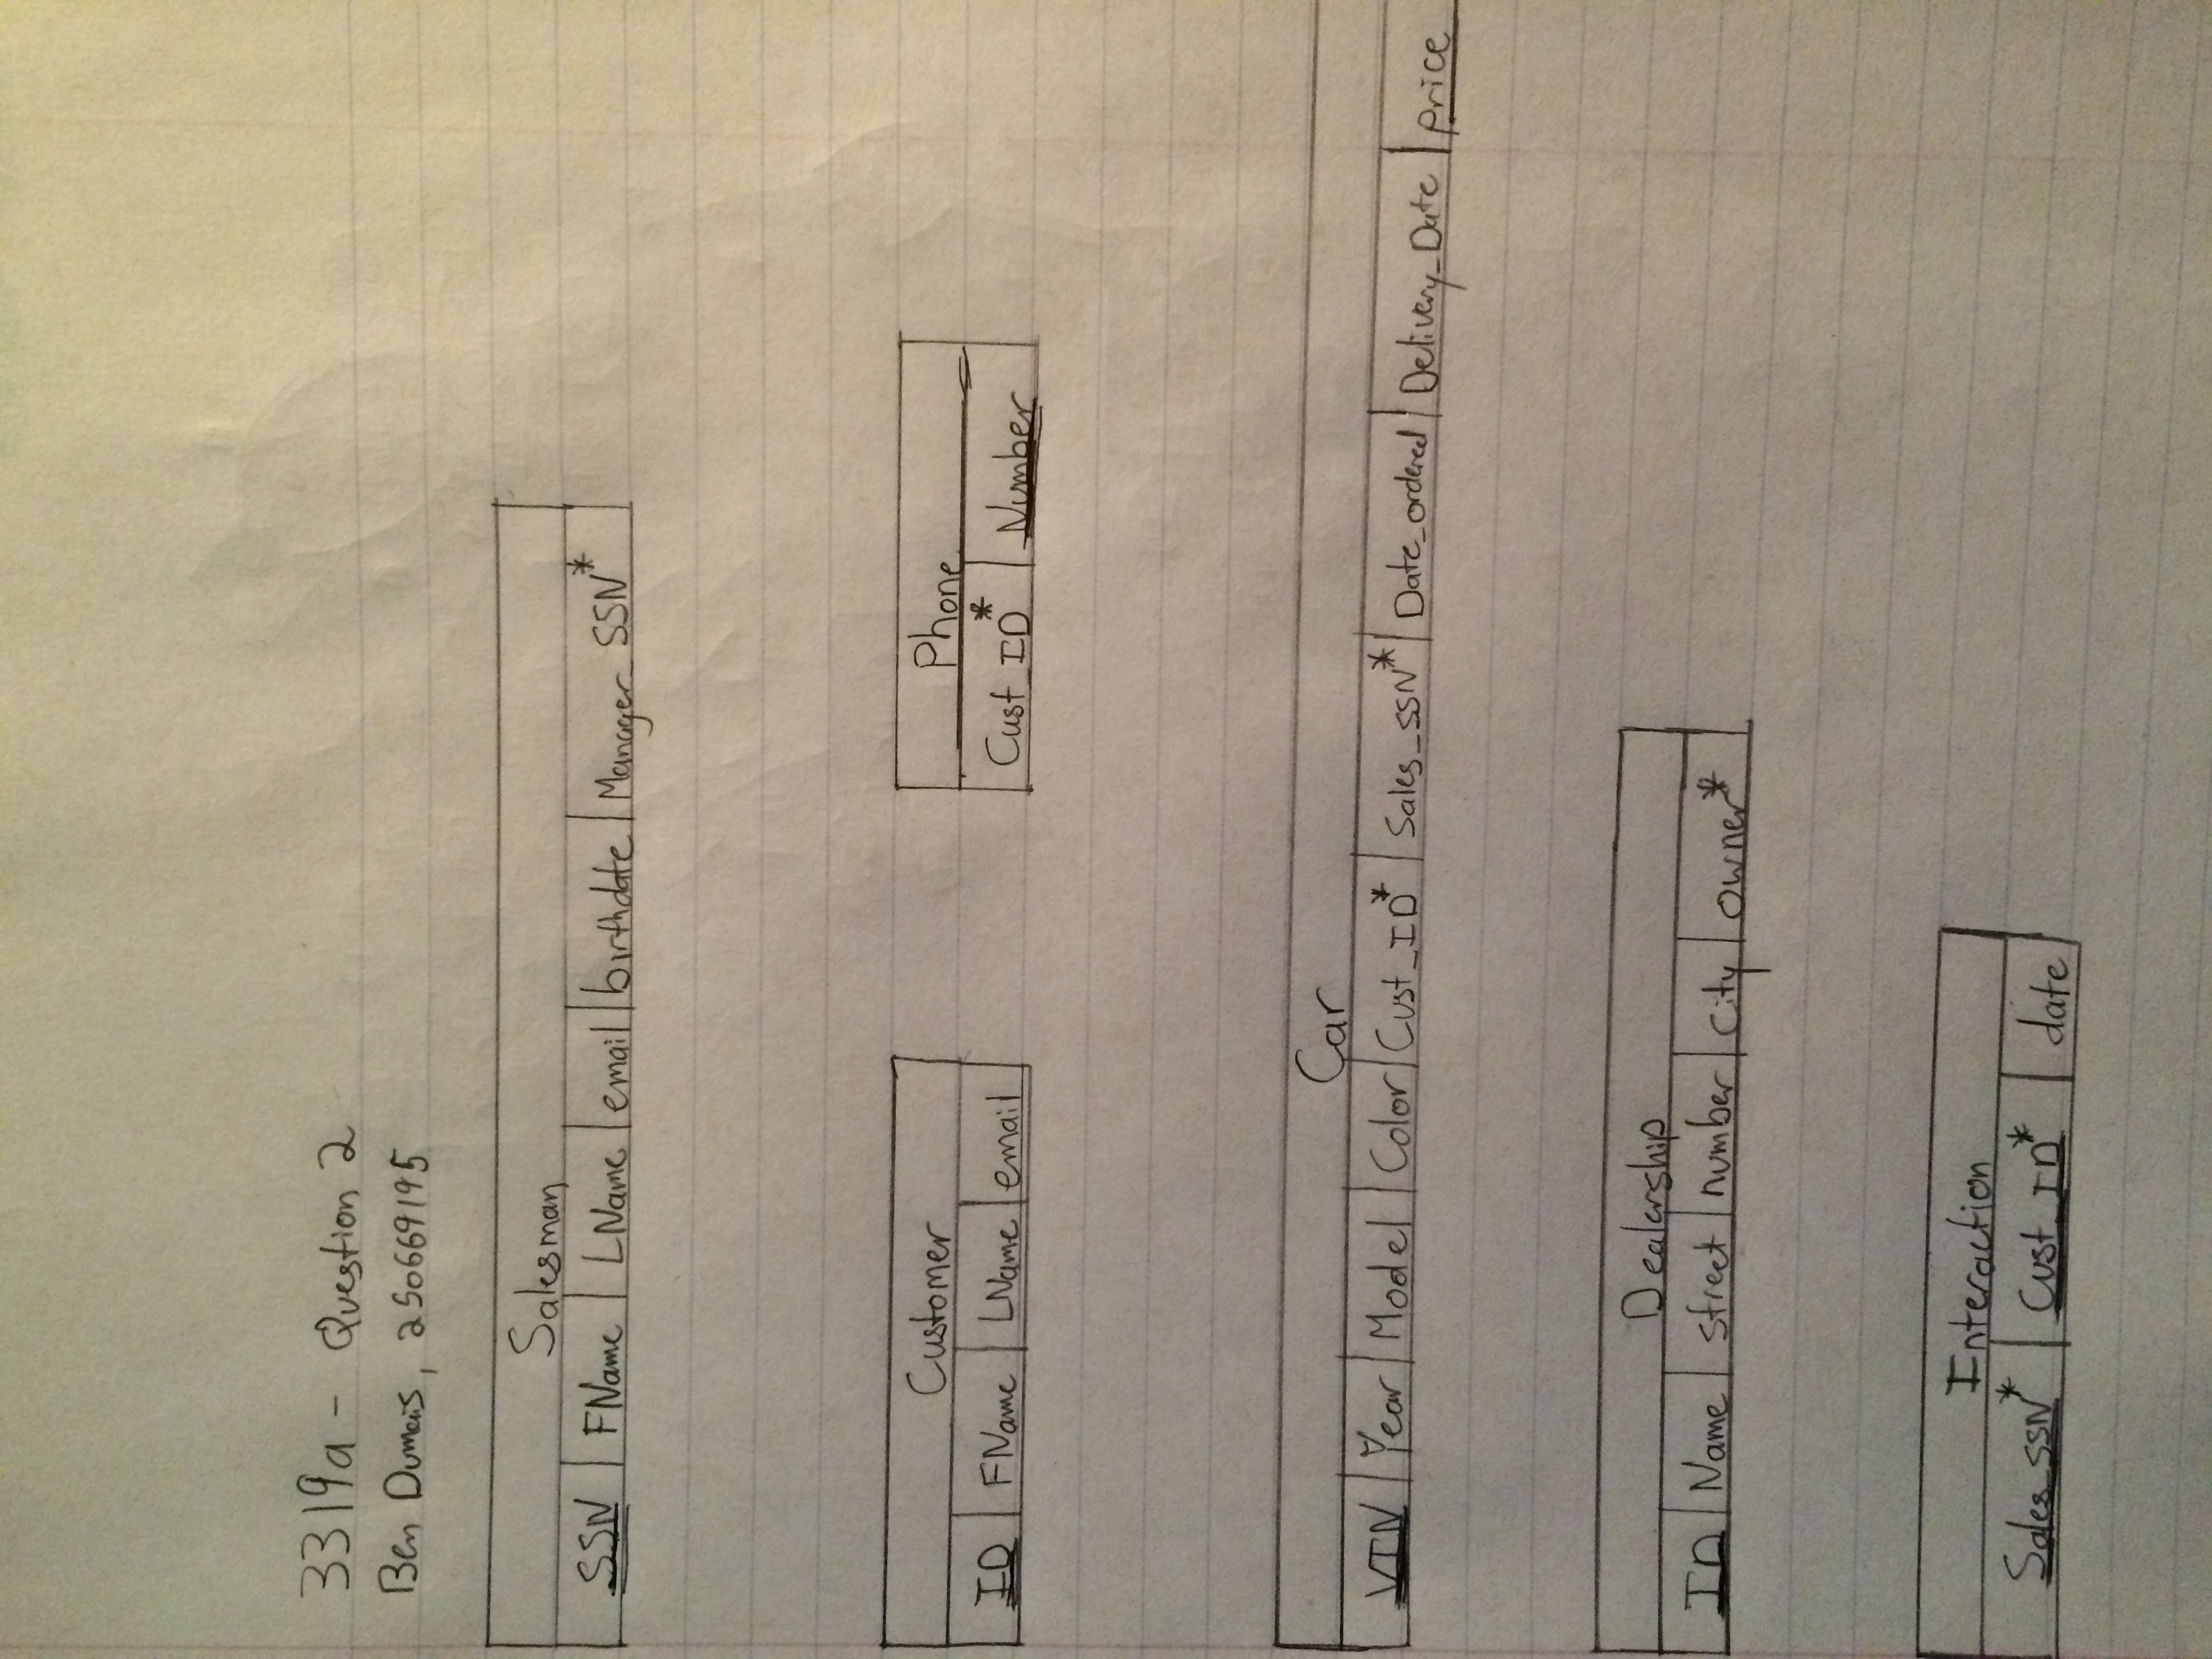 3319a - Question 2
Ben Dumais, 250669195
Salesman
SSN FName LName email birthdate Manager_SSN*
Customer
ID FName LName email
Phone
Cust_ID* Number
Car
VIN Year Model Color Cust_ID* Sales_SSN* Date_ordered Delivery_Date price
Dealership
ID Name street number city owner*
Interaction
Sales_SSN* Cust_ID* date